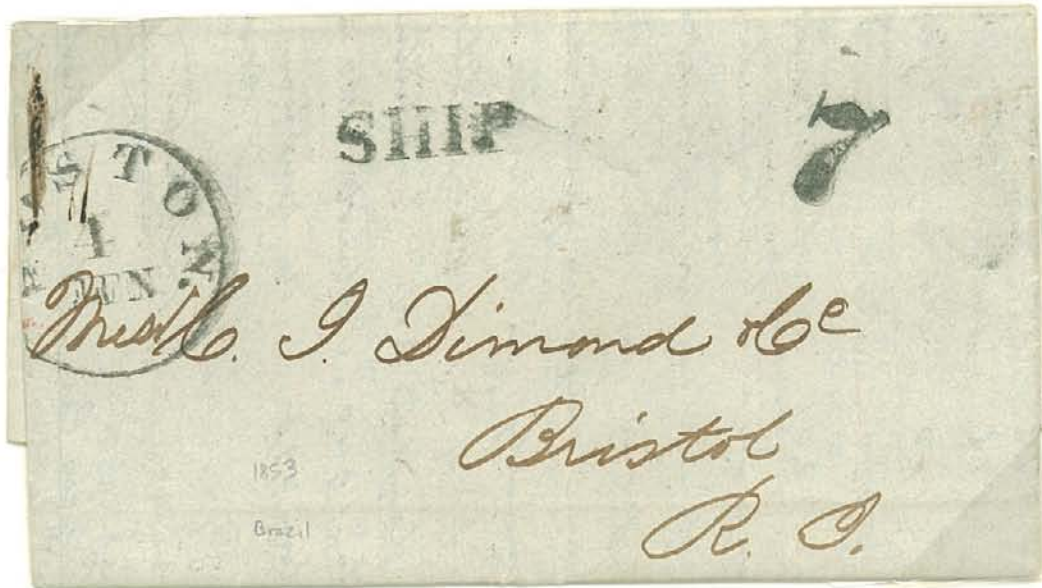 SHIP
7
STON
1
JUN
I. Dimond & Co
Bristol
R. I.
1853
Brazil